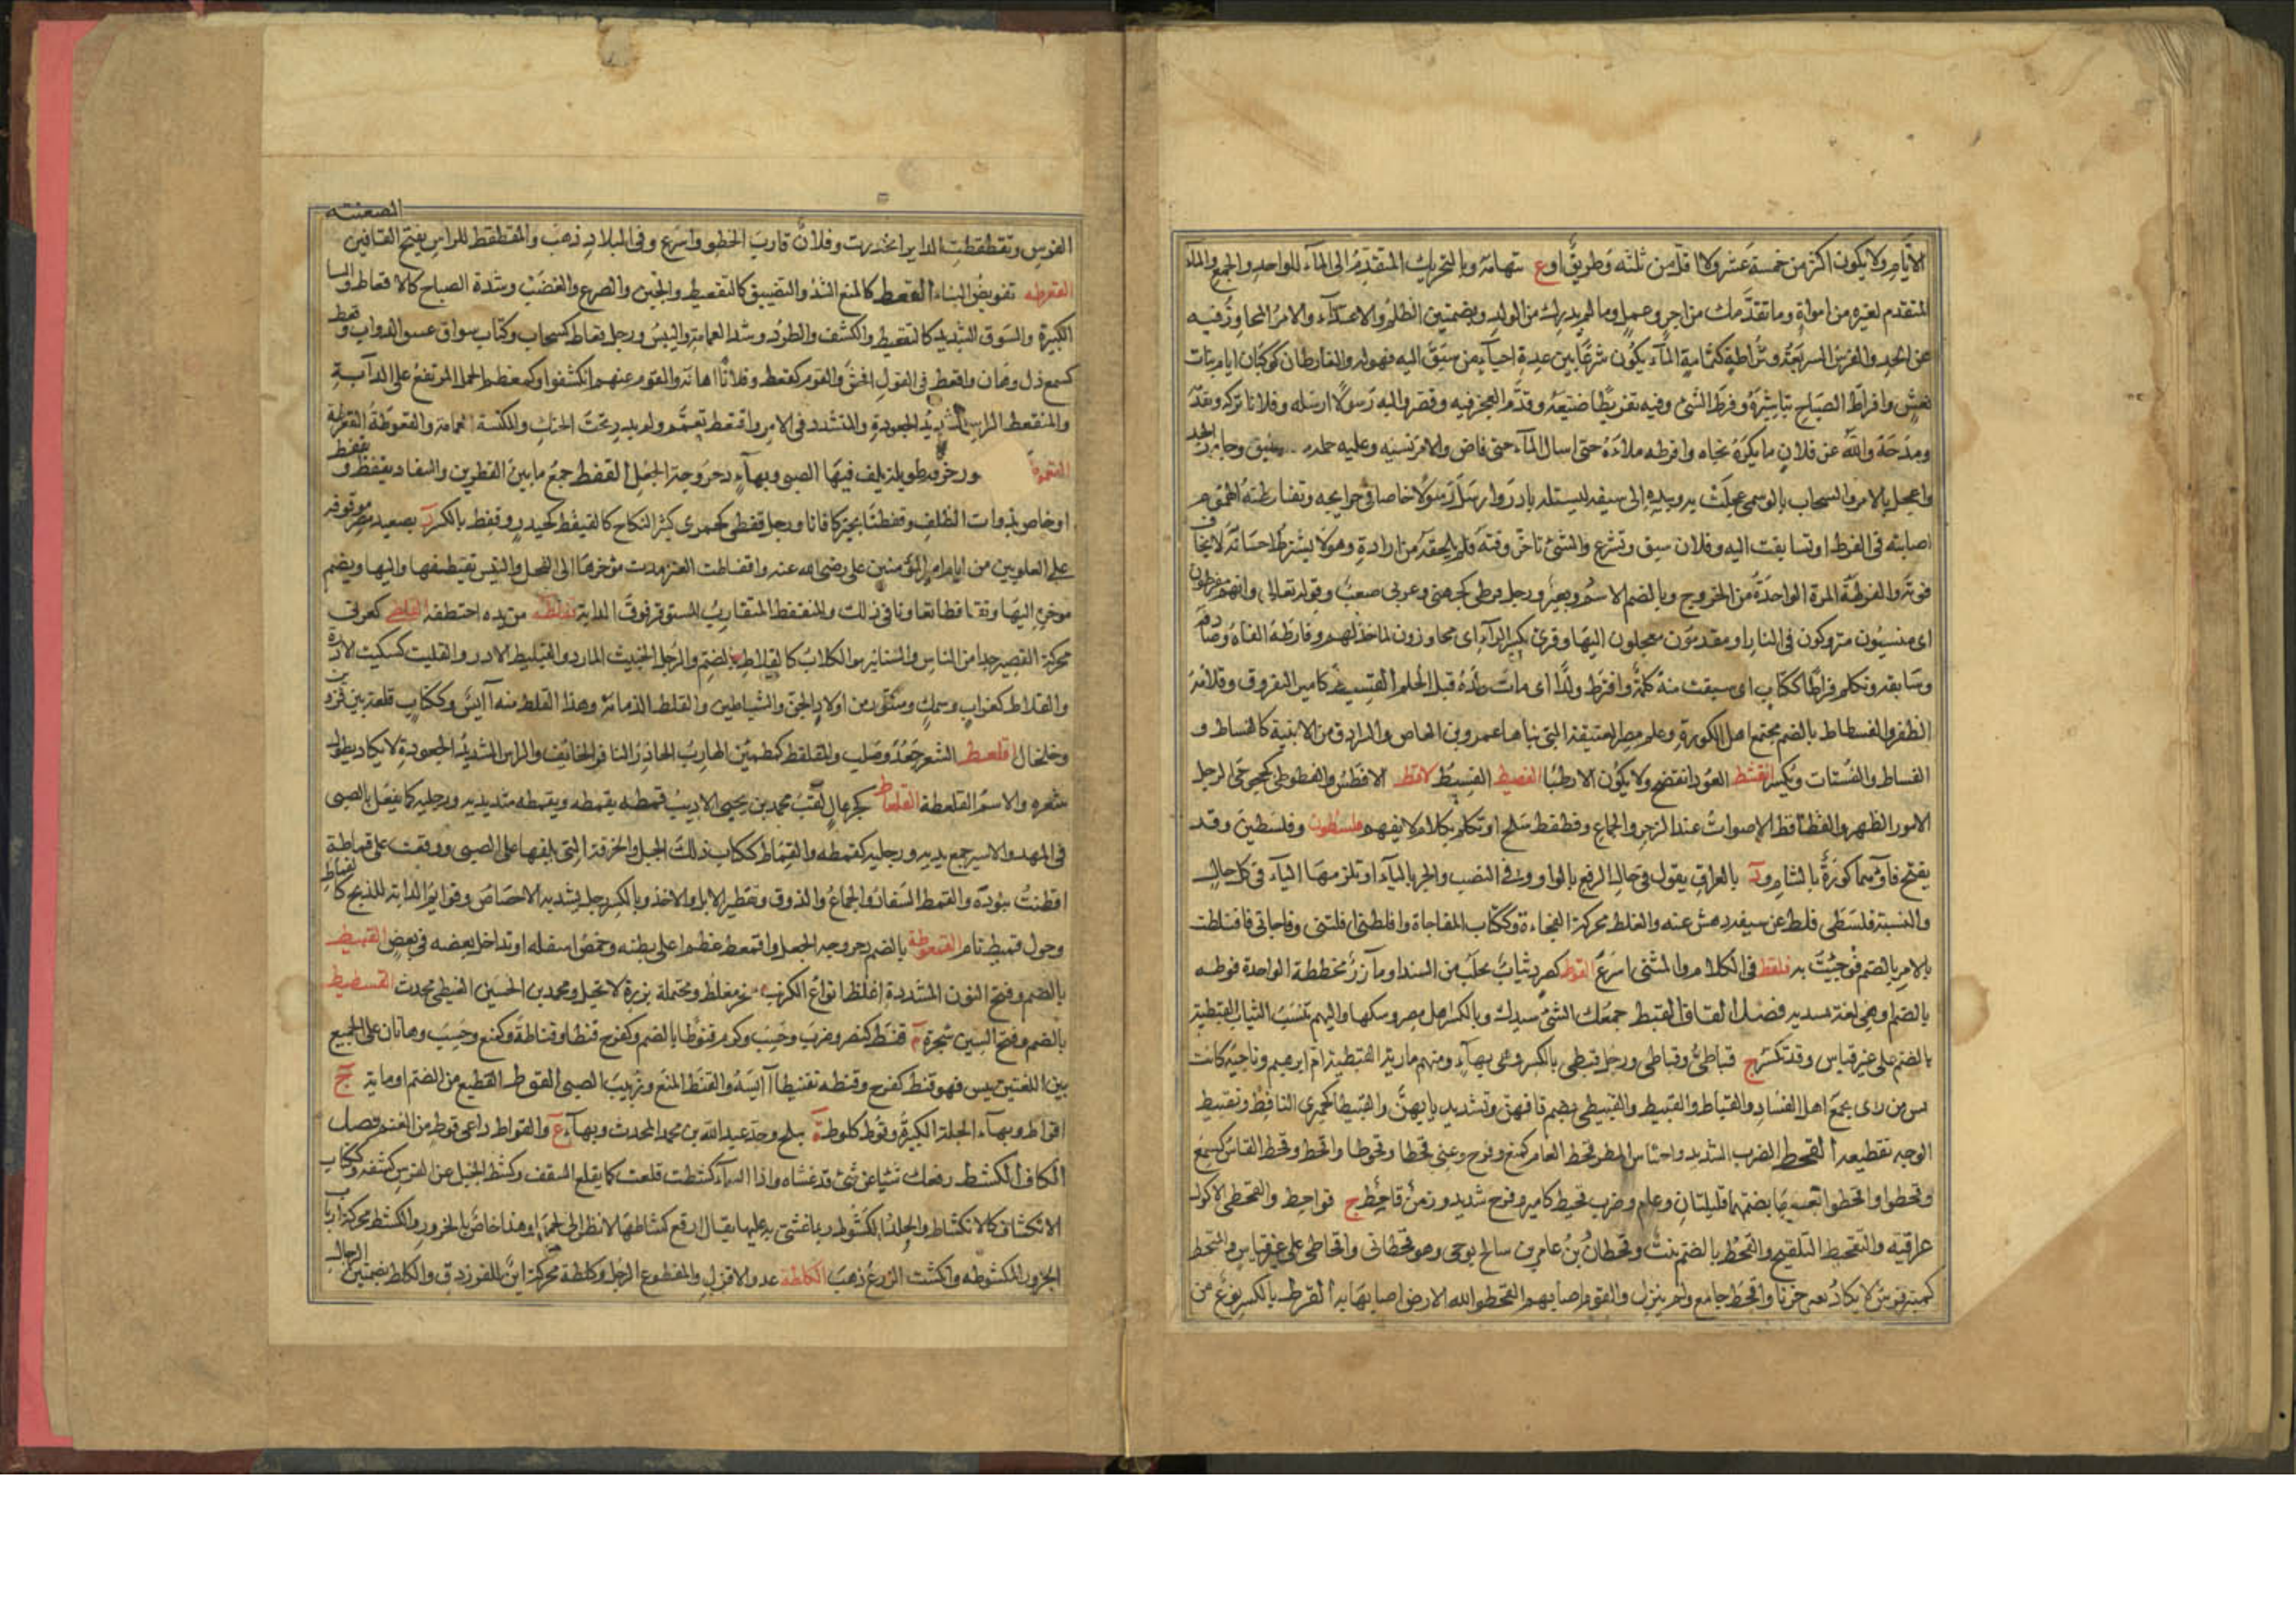 الايام ولا يكون اكثر من خمسة عشر ولا اقل من ثلثه وطريق او ع بتهامة وبالتحريك المتقدم الى المآء للواحد والجمع والمآء
المتقدم لغيره من امواه وما تقدمك من اجر وعمل وما لم يدرك من الولد وبضمتين الظلم والاعتدآء والامر المجاوز فيه
عن الحد والفرس السريعة وفراطة كثمامة المآء يكون شرعا بين عدة احيآء من سبق اليه فهو له والفارطان كوكبان امام بنات
نعش وافراط الصباح تباشره وفرط الشئ وفيه تفريطا ضيعه وقدم العجز فيه وقصر واليه رسولا ارسله وفلانا تركه وتقدمه
ومدحه والله عن فلان ما يكره نجاه وافرطه ملاءه حتى اسال المآء حتى فاض والامر نسيه وعليه حمله وجاوز الحد
واعجل بالامر والسحاب بالوسمى عجلت به وبيده الى سيفه ليستله بادر وارسل رسولا خاصا فى حوايجه وتفارطته الهموم
اصابته فى الفرط او تسابقت اليه وفلان سبق وتسرع والشئ تاخر وقته فلم يلحقه من اراده وهو لا يفترط احسانه لا يخاف
فوته والفرطة المرة الواحدة من الخروج وبالضم الاسم وبعير ورجل فرطى كجهنى وعربى صعب وقوله تعالى وانهم مفرطون
اى منسيون متروكون فى النار او مقدمون معجلون اليها وقرئ بكسر الرآء اى مجاوزون لما حد لهم وفارطه الفاه وصادفه
وسابقه وتكلم فراطا ككتاب اى سبقت منه كلمة وافترط ولدا اى مات ولده قبل الحلم الفسيط كامير الثفروق وقلامة
الظفر والفسطاط بالضم مجتمع اهل الكورة وعلم مصر العتيقة التى بناها عمرو بن العاص والسرادق من الابنية كالفستاط و
الفساط والفستات ويكسر انفشط العود انفضخ ولا يكون الا رطبا الفصيط الفسيط الافطس والفطوطى كخجوجى الرجل
الامور الظهر والفظافظ الاصوات عند الزجر والجماع وفطفط سلح او تكلم بكلام لا يفهم فلسطون وفلسطين وقد
يفتح فاؤهما كورة بالشام وة بالعراق يقول فى حال الرفع بالواو وفى النصب والجر بالياء او تلزمها اليآء فى كل حال
والنسبة فلسطى فلط عن سيفه دهش عنه والفلط محركة الفجاءة وككتاب المفاجاة وافلطنى افلتنى وفاجانى فافتلطت
بالامر بالضم فوجئت به فلقط فى الكلام والمشى اسرع الفوط كصرد ثياب تجلب من السند او مآزر مخططة الواحدة فوطه
بالضم او هى لغة سنديه فصل القاف القبط جمعك الشئ بيدك وبالكسر اهل مصر وبنكها واليهم تنسب الثياب القبطية
بالضم على غير قياس وقد تكسر ج قباطى وقباطى ورجل قبطى بالكسر وهى بهآء ومنهم مارية القبطية ام ابرهيم وناحية كانت
بسر من راى يجمع اهل الفساد والقباط والقبيط والقبيطى بضم قافهن وتشديد بايهن والقبيطا كحميرا الناطف وتقبيط
الوجه تقطيبه القحط الضرب الشديد واحتباس المطر قحط العام كمنع وفرح وعنى قحطا وقحوطا واقحط وقحط الناس كسمع
وقحطوا واقحطوا بضمهما قليلتان وعام وضرب قحيط كامير وفرح شديد وزمن قاحط ج قواحط والقحطى الاكول
عراقيه والتقحيط التلقيح والقحط بالضم نبت وقحطان بن عامر بن سالخ ابو حى وهو قحطانى واقحاطى على غير قياس والمقحط
كمنبر فرس لا يكاد يعى جريا واقحط جامع ولم ينزل والقوم اصابهم القحط والله الارض اصابها به القرط بالكسر نوع من
الصعنته
الفوس وتقطقطت الدابر انحدرت وفلان قارب الخطو واسرع وفى البلاد ذهب والمقطقط للراس بفتح القافين
القعرطه تفويض البناء القعط كالمنع الشد والتضييق كالتقعيط والجبن والصرع والغضب وشدة الصياح كالاقعاط والشا
الكبيرة والسوق الشديد كالتقعيط والكشف والطرد وشد العمامة واليبس ورجل قعاط كسحاب وكتاب سواق عسوف الدواب وقعط
كسمع ذل وهان واقعط فى القول افحش والقوم كقعط وفلانا اهانه والقوم عنهم انكشفوا وكمعظم الحمل المرتفع على الدآبة
والمتقعط الراس الشديد الجعودة والمتشدد فى الامر واقتعط تعمم ولم يدر تحت الحنك والمكنسة العمامة والقعوطة القعرطة
ورخرقه طويلة يلف فيها الصبى وبهآء دحروجة الجعل القفط جمع ما بين القطرين والسفاد يقفط و يقفط
او خاص بذوات الظلف وقفطنا بخير كافانا ورجل قفطى كجمزى كثير النكاح كالقيفط كحيدر وقفط بالكسر د بصعيد مصر موقوفه
على العلويين من ايام امير المؤمنين على رضى الله عنه واقفاطت العنز مدت مؤخرها الى الفحل والتيس يقتفطها واليها ويضم
موخره اليها وتقافطا تعاونا فى ذلك والمقتفط المتقارب المستوفز فوق الدابة تقلطه من يده اختطفه القلطى كعربى
محركة القصير جدا من الناس والسنانير والكلاب كالقلاط بالضم والرجل الخبيث المارد والقيليط الادر والقليت كسكيت الادرة
والقلاط كغراب وسمك وسنور من اولاد الجن والشياطين والقلط الدمامة وهذا اقلط منه آيس وككتاب قلعة بين قزوين
وخلخال اقلعط الشعر جعد وصلب والمقلعط كمطمئن الهارب الحاذر النافر الخائف والراس الشديد الجعودة لا يكاد يطول
شعره والاسم القلعطة القلماط كجرهال لقب محمد بن يحيى الاديب قمطه يقمطه ويقمطه شد يديه ورجليه كما يفعل بالصبى
فى المهد والاسير جمع يديه ورجليه كقمطه والقماط ككتاب ذلك الحبل والخرقة التى تلفها على الصبى ووقعت على قماطة
افطنت بتؤدة والقمط السفاد والجماع والذوق وتقطير الابل والاخذ وبالكسر حبل يشد به الاخصاص وقوايم الدابة للذبح كالقماط
وحول قميط تام القمعوطة بالضم دحروجه الجعل واقمعط عظم اعلى بطنه وخمص اسفله او تداخل بعضه فى بعض القنبيط
بالضم وفتح النون المشددة اغلظ انواع الكرنب مبخر مغلظ ومحتملة بزره لا تحبل ومحمد بن الحسين القنبيطى محدث القنسطيط
بالضم وفتح السين شجرة م قنط كنصر وضرب وحسب وكرم قنوطا بالضم وكفرح قنطا وقناطة وكمنع وحسب وهاتان على الجمع
بين اللغتين يئس فهو قنط كفرح وقنطه تقنيطا آيسه والقنط المنع وزبيب الصبى القوط القطيع من الغنم او ماية ج
اقواط وبهآء الجلة الكبيرة وقوط كلوط ة ببلخ وجد عبدالله بن محمد المحدث وبهآء ع والقواط راعى قوط من الغنم فصل
الكاف الكشط رفعك شيا عن شئ قد غشاه واذا السمآء كشطت قلعت كما يقلع السقف وكشط الجل عن الفرس كشفه وككتاب
الانكشاف كالانكشاط والجلد المكشوط ربما غشى به عليها يقال ارفع كشاطها لانظر الى لحمها وهذا خاص بالجزور والكشطة محركة ارباب
الجزور المكشوطه وانكشط الروع ذهب الكلطة عدو الاقزل والمقطوع الرجل وكلطة محركة ابن للفرزدق والكلط بضمتين الرجال